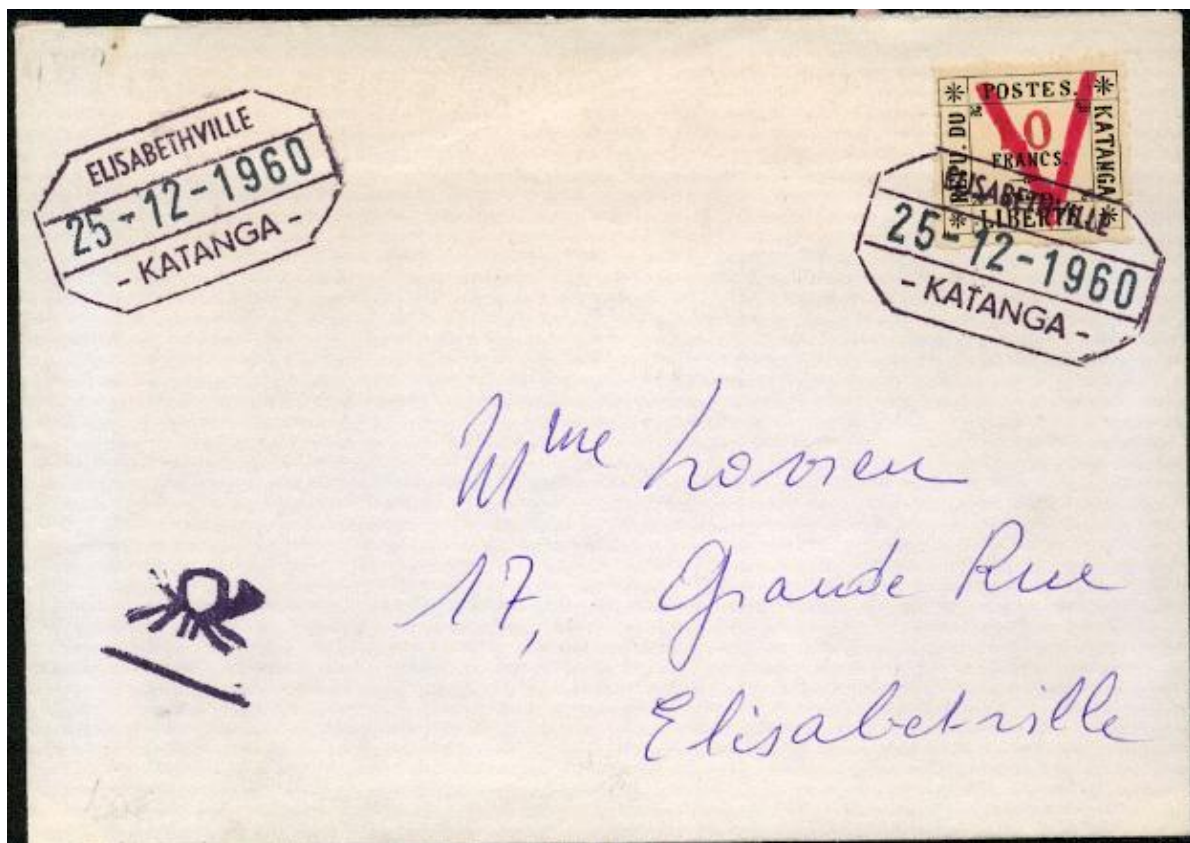 ELISABETHVILLE
25-12-1960
- KATANGA -
POSTES.
KATANGA
DU
10
FRANCS.
LIBERTE
ELISABETHVILLE
25-12-1960
- KATANGA -
Mme
17, Grande Rue
Elisabetville